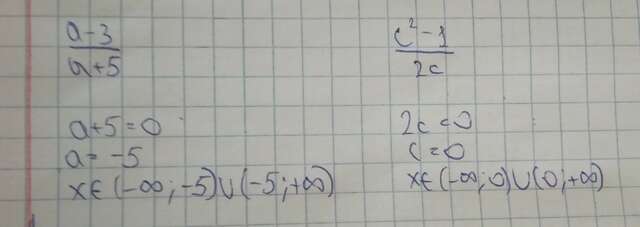 a-3
a+5
a+5=0
a=-5
x∈(-∞;-5)∪(-5;+∞)
c²-1
2c
2c=0
c=0
x∈(-∞;0)∪(0;+∞)